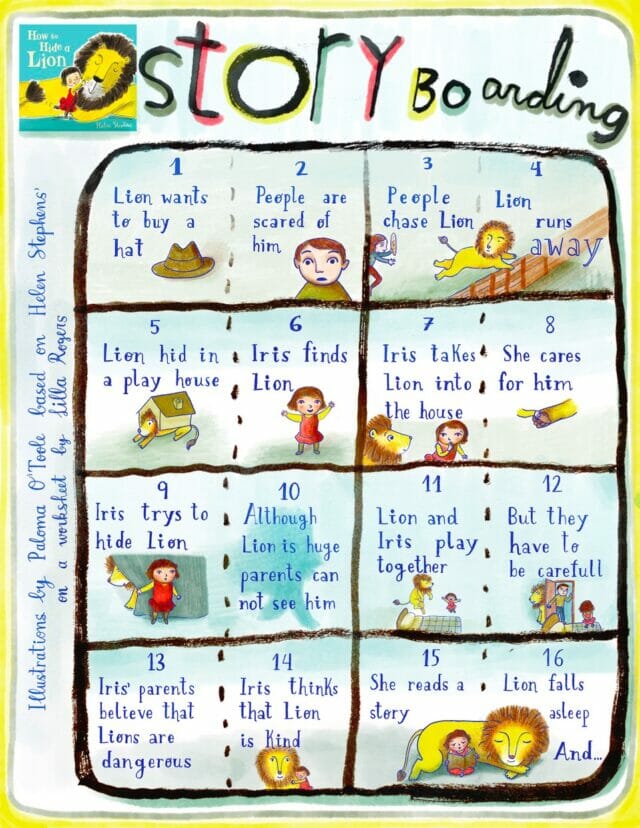 How to
Hide a
Lion
Helen Stephens
STORY BOarding
Illustrations by Paloma O'Toole based on Helen Stephens'
on a worksheet by Lilla Rogers
1
Lion wants
to buy a
hat
2
People are
scared of
him
3
People
chase Lion
4
Lion
runs
away
5
Lion hid in
a play house
6
Iris finds
Lion
7
Iris takes
Lion into
the house
8
She cares
for him
9
Iris trys to
hide Lion
10
Although
Lion is huge
parents can
not see him
11
Lion and
Iris play
together
12
But they
have to
be carefull
13
Iris' parents
believe that
Lions are
dangerous
14
Iris thinks
that Lion
is Kind
15
She reads a
story
16
Lion falls
asleep
And...